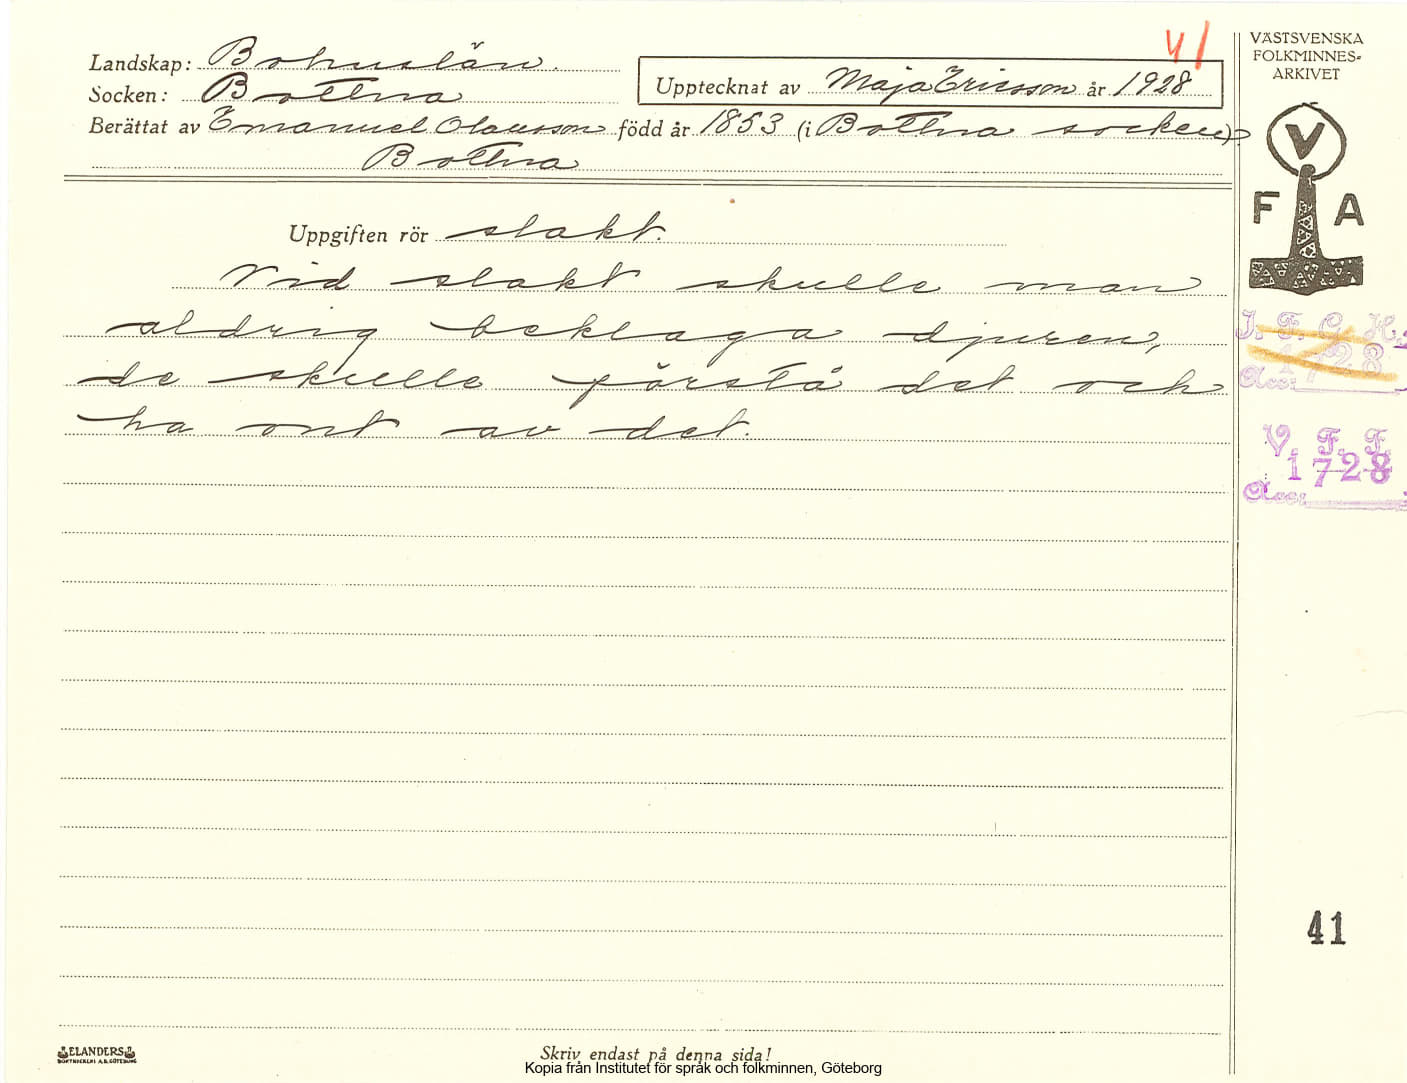 41
Landskap: Bohuslän.
Socken: Bottna
Upptecknat av Maja Ericsson år 1928
Berättat av Emanuel Olausson född år 1853 (i Bottna socken)
Bottna
Uppgiften rör slakt.
Vid slakt skulle man
aldrig beklaga djuren,
de skulle förstå det och
ha ont av det.
VÄSTSVENSKA
FOLKMINNES-
ARKIVET
V
F A
I. F. G. H.
1728
Acc:
V. F. F.
1728
Acc:
41
ELANDERS
BOKTRYCKERI A.B. GÖTEBORG
Skriv endast på denna sida!
Kopia från Institutet för språk och folkminnen, Göteborg